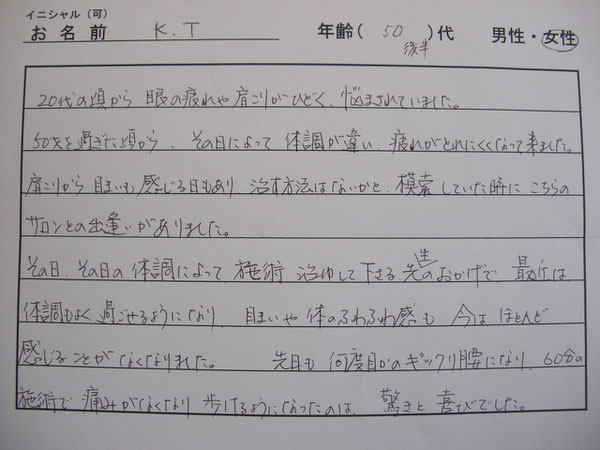 イニシャル（可）
お名前 K.T 年齢( 50 後半 )代 男性・女性
20代の頃から 眼の疲れや肩こりがひどく、悩まされていました。
50才を過ぎた頃から、その日によって 体調が違い、疲れがとれにくくなって来ました。
肩こりから 目まいも 感じる日もあり 治す方法はないかと、模索していた時に こちらの
サロンとの出逢いがありました。
その日、その日の 体調によって、施術 治ゆして下さる 先生のおかげで 最近は
体調もよく 過ごせるようになり 目まいや 体のふわふわ感も 今は ほとんど
感じることがなくなりました。 先日も 何度目かの ギックリ腰になり、60分の
施術で 痛みがなくなり 歩けるようになったのは、驚きと 喜びでした。